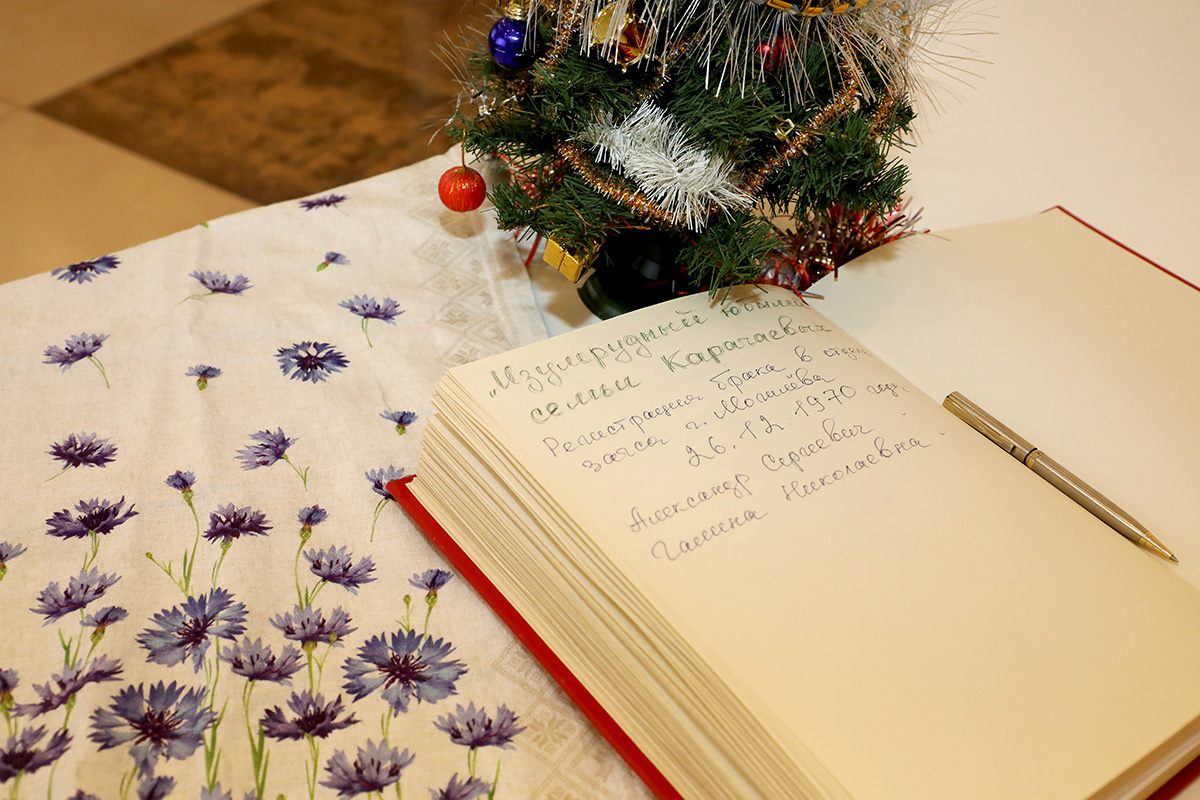 „Изумрудный юбилей
семьи Карачаевых
Регистрация брака в отделе
загса г. Могилёва
26.12.1970 года
Александр Сергеевич
Галина Николаевна